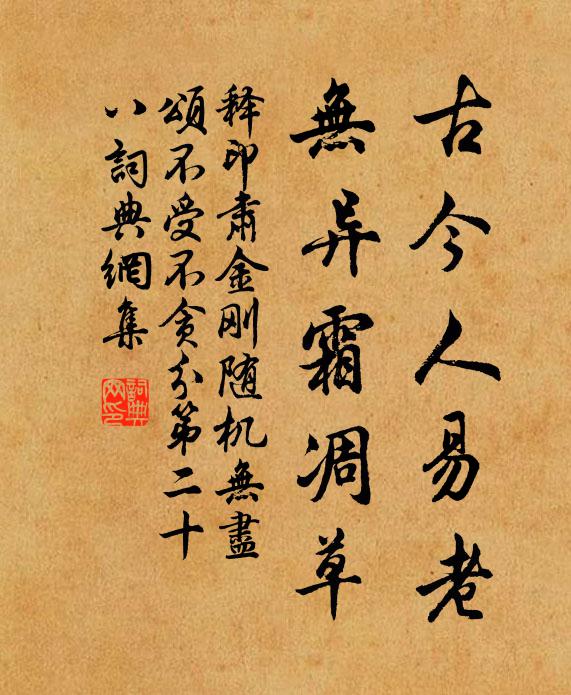 古今人易老
無异霜凋草
释印肅金刚随机無盡
頌不受不贪分第二十
八詞典網集
詞典
网印